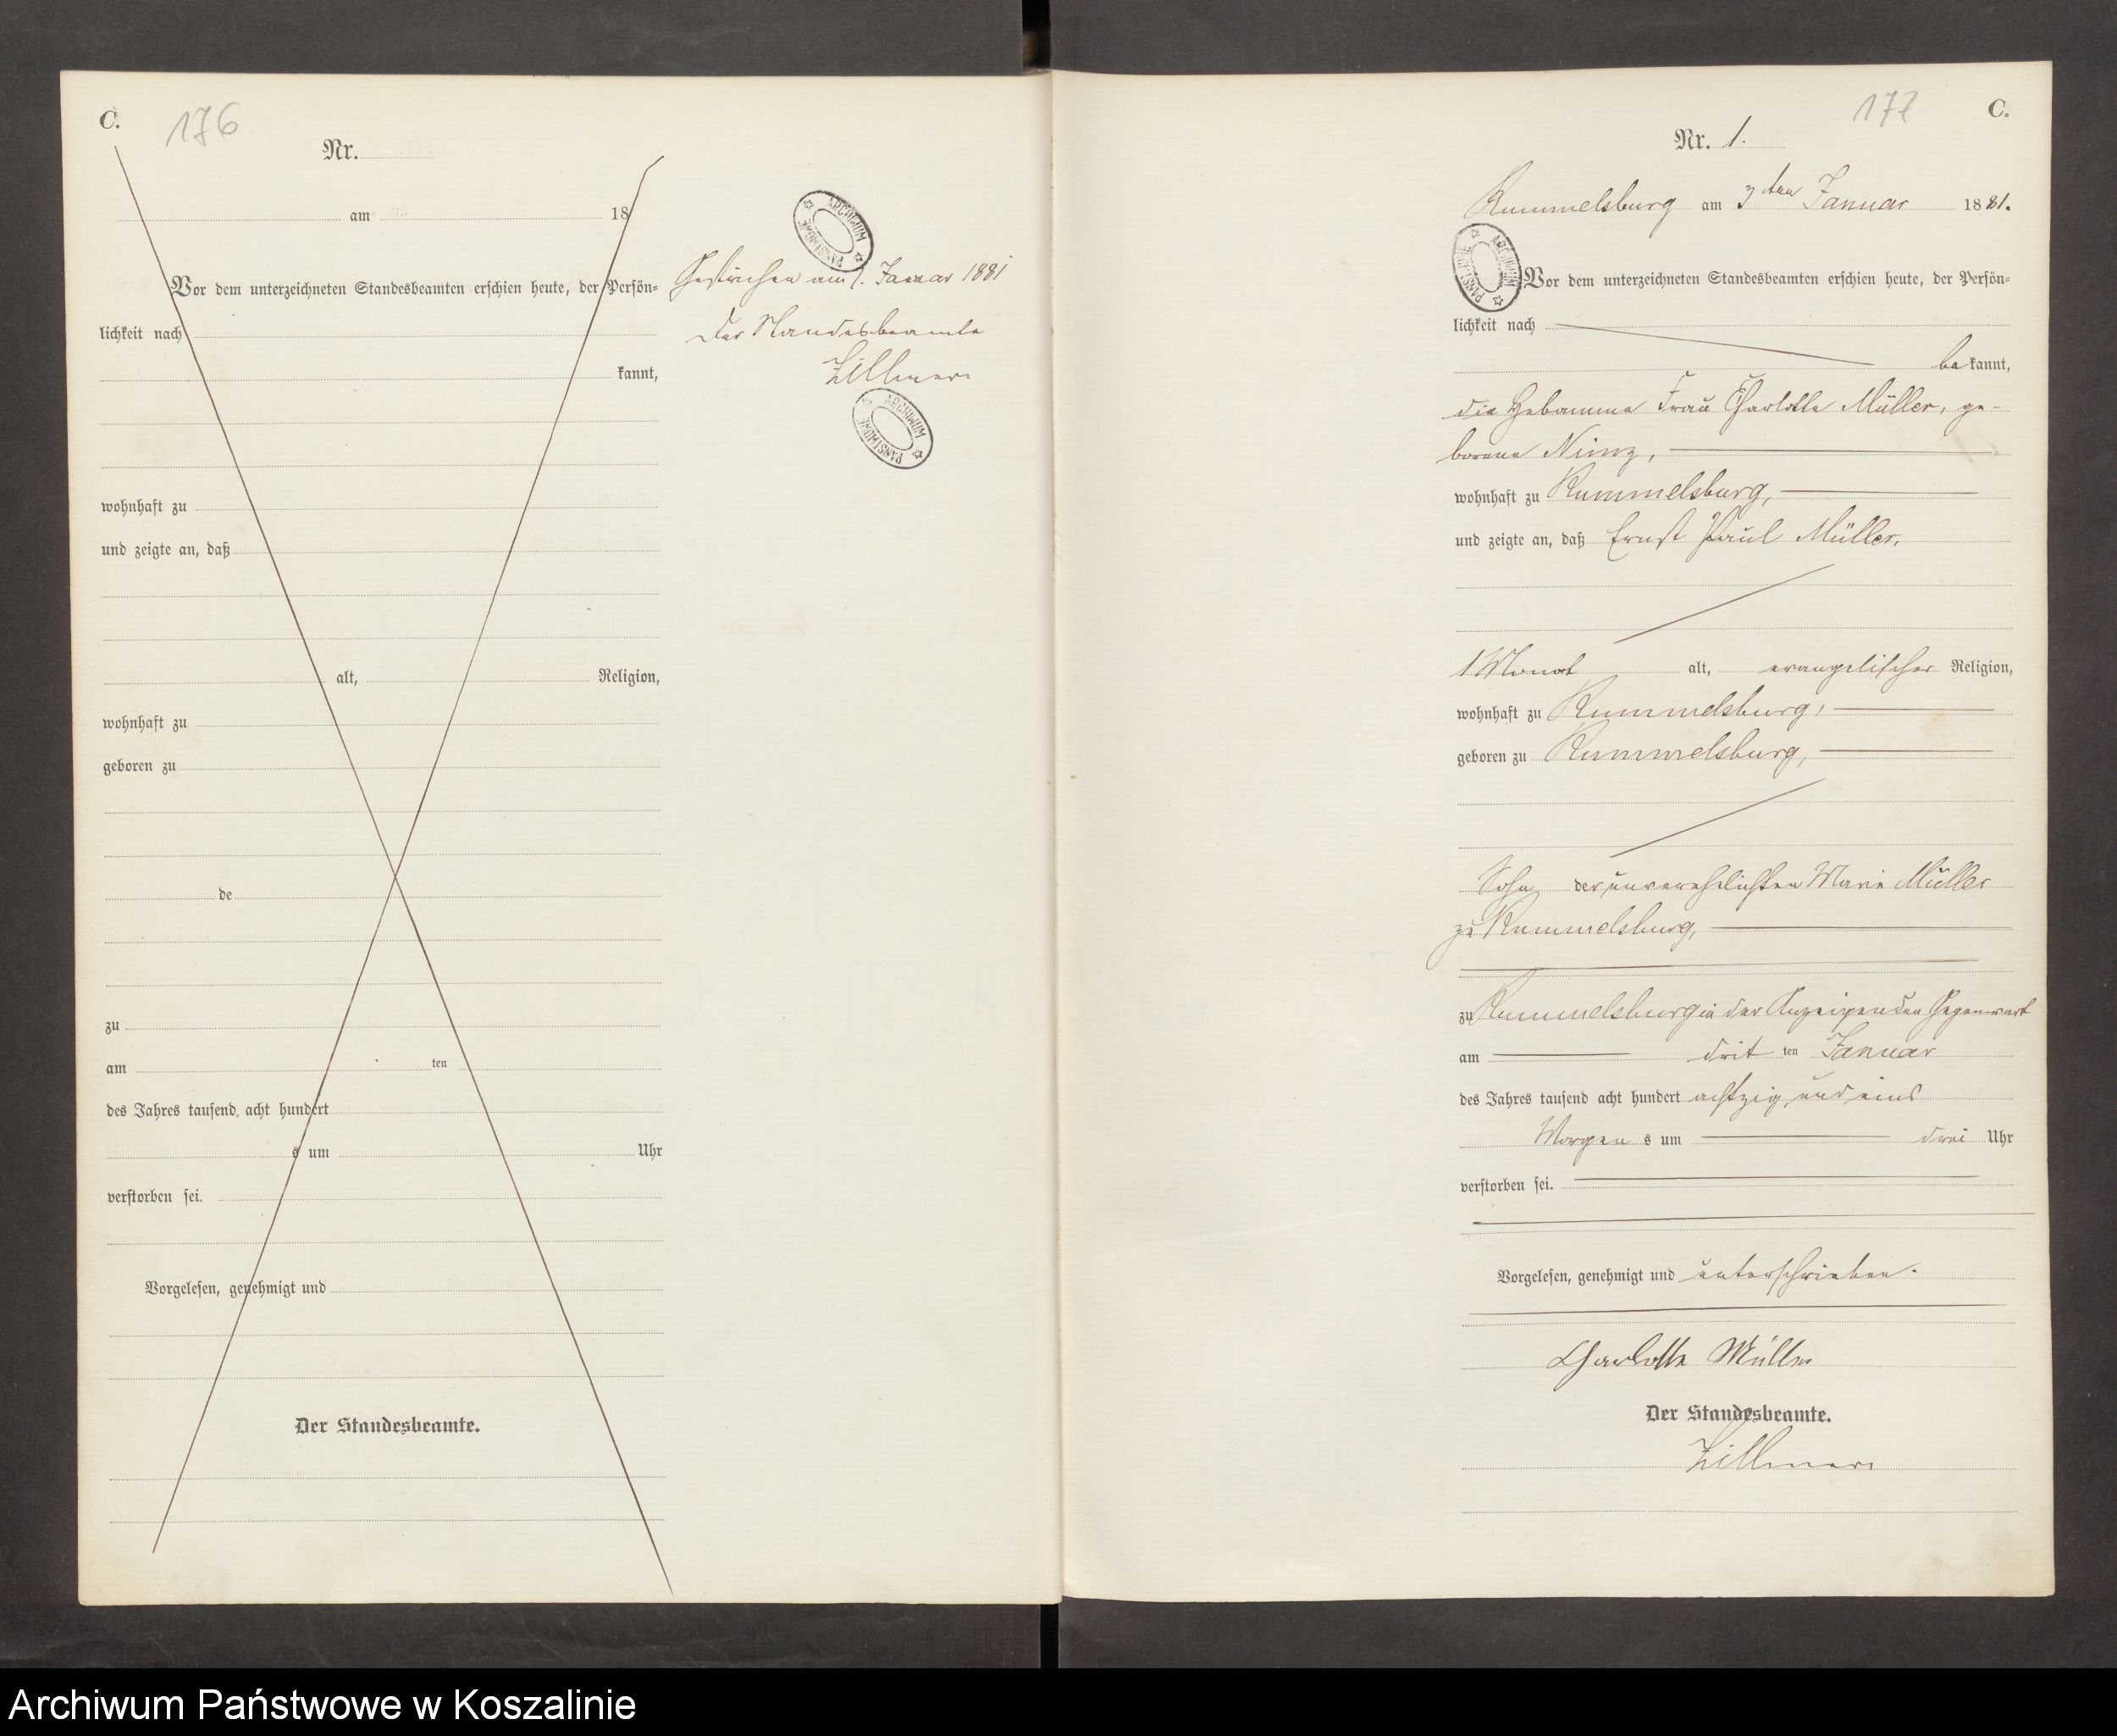 C.
176
Nr.
am 18
Vor dem unterzeichneten Standesbeamten erschien heute, der Persön=
lichkeit nach
kannt,
wohnhaft zu
und zeigte an, daß
alt, Religion,
wohnhaft zu
geboren zu
de
zu
am ten
des Jahres tausend acht hundert
s um Uhr
verstorben sei.
Vorgelesen, genehmigt und
Der Standesbeamte.
ARCHIWUM PAŃSTWOWE
Gestrichen am 1. Januar 1881
Der Standesbeamte
Zillmer.
ARCHIWUM PAŃSTWOWE
177
C.
Nr. 1.
Rummelsburg am 3ten Januar 1881.
ARCHIWUM PAŃSTWOWE
Vor dem unterzeichneten Standesbeamten erschien heute, der Persön=
lichkeit nach
bekannt,
die Hebamme Frau Charlotte Müller, ge-
borene Nimz,
wohnhaft zu Rummelsburg,
und zeigte an, daß Ernst Paul Müller,
1 Monat alt, evangelischer Religion,
wohnhaft zu Rummelsburg,
geboren zu Rummelsburg,
Sohn der unverehelichten Marie Müller
zu Rummelsburg,
zu Rummelsburg in der Anzeigenden Gegenwart
am dritten Januar
des Jahres tausend acht hundert achtzig und eins
Morgens um drei Uhr
verstorben sei.
Vorgelesen, genehmigt und unterschrieben.
Charlotte Müller
Der Standesbeamte.
Zillmer.
Archiwum Państwowe w Koszalinie